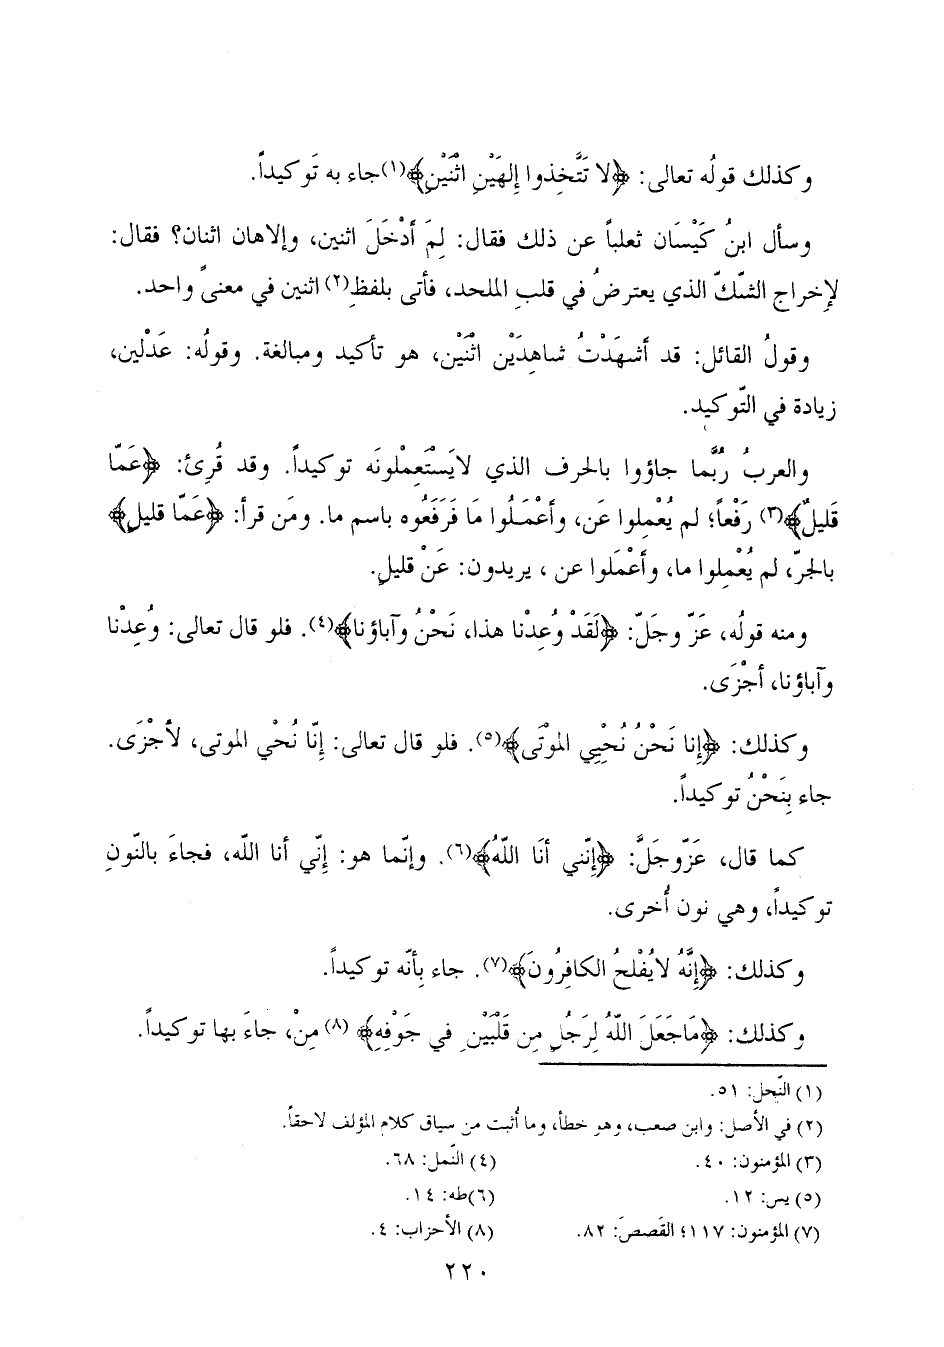 وكذلك قولُه تعالى: ﴿لا تَتَّخِذوا إِلهَيْنِ اثْنَيْنِ﴾(١)جاء به تَوكيداً.
وسأل ابنُ كَيْسَان ثعلباً عن ذلك فقال: لِمَ أَدْخَلَ اثنين، وإلاهان اثنان؟ فقال:
لإخراج الشّكّ الذي يعترضُ في قلبِ الملحد، فأتى بلفظِ(٢)اثنين في معنىً واحد.
وقولُ القائل: قد أشهَدْتُ شاهِدَيْن اثْنَيْن، هو تأكيد ومبالغة. وقولُه: عَدْلين،
زيادة في التّوكيد.
والعربُ رُبَّما جاؤوا بالحرف الذي لايَسْتَعِمْلونَه توكيداً. وقد قُرِئ: ﴿عَمّا
قَليلٌ﴾(٣) رَفْعاً؛ لم يُعْمِلوا عَن، وأعْمَلُوا مَا فَرَفَعُوه باسم ما. ومَن قرأ: ﴿عَمّا قليلٍ﴾
بالجرّ، لم يُعْمِلوا ما، وأعْمَلوا عن ، يريدون: عَنْ قليلٍ.
ومنه قولُه، عَزّ وجَلّ: ﴿لَقَدْ وُعِدْنا هذا، نَحْنُ وآباؤنا﴾(٤). فلو قال تعالى: وُعِدْنا
وآباؤنا، أجْزَى.
وكذلك: ﴿إنا نَحْنُ نُحْيِي الموْتَى﴾(٥). فلو قال تعالى: إنّا نُحْي الموتى، لأجْزَى.
جاء بِنَحْنُ توكيداً.
كما قال، عَزّوجَلَّ: ﴿إنّني أنَا اللّهُ﴾(٦). وإنّما هو: إنّي أنا الله، فجاءَ بالنّونِ
توكيداً، وهي نون أُخرى.
وكذلك: ﴿إنَّهُ لايُفْلحُ الكافِرُونَ﴾(٧). جاء بِأنّه توكيداً.
وكذلك: ﴿مَاجَعَلَ اللّهُ لِرَجُلٍ مِن قَلْبَيْنِ في جَوْفِهِ﴾ (٨) مِنْ، جاءَ بها توكيداً.
(١) النّحل: ٥١.
(٢) في الأصل: وابن صعب، وهو خطأ، وما أُثبت من سياق كلام المؤلف لاحقاً.
(٣) المؤمنون: ٤٠. (٤) النّمل: ٦٨.
(٥) يس: ١٢. (٦)طه: ١٤.
(٧) المؤمنون: ١١٧؛ القَصصَ: ٨٢. (٨) الأحزاب: ٤.
٢٢٠